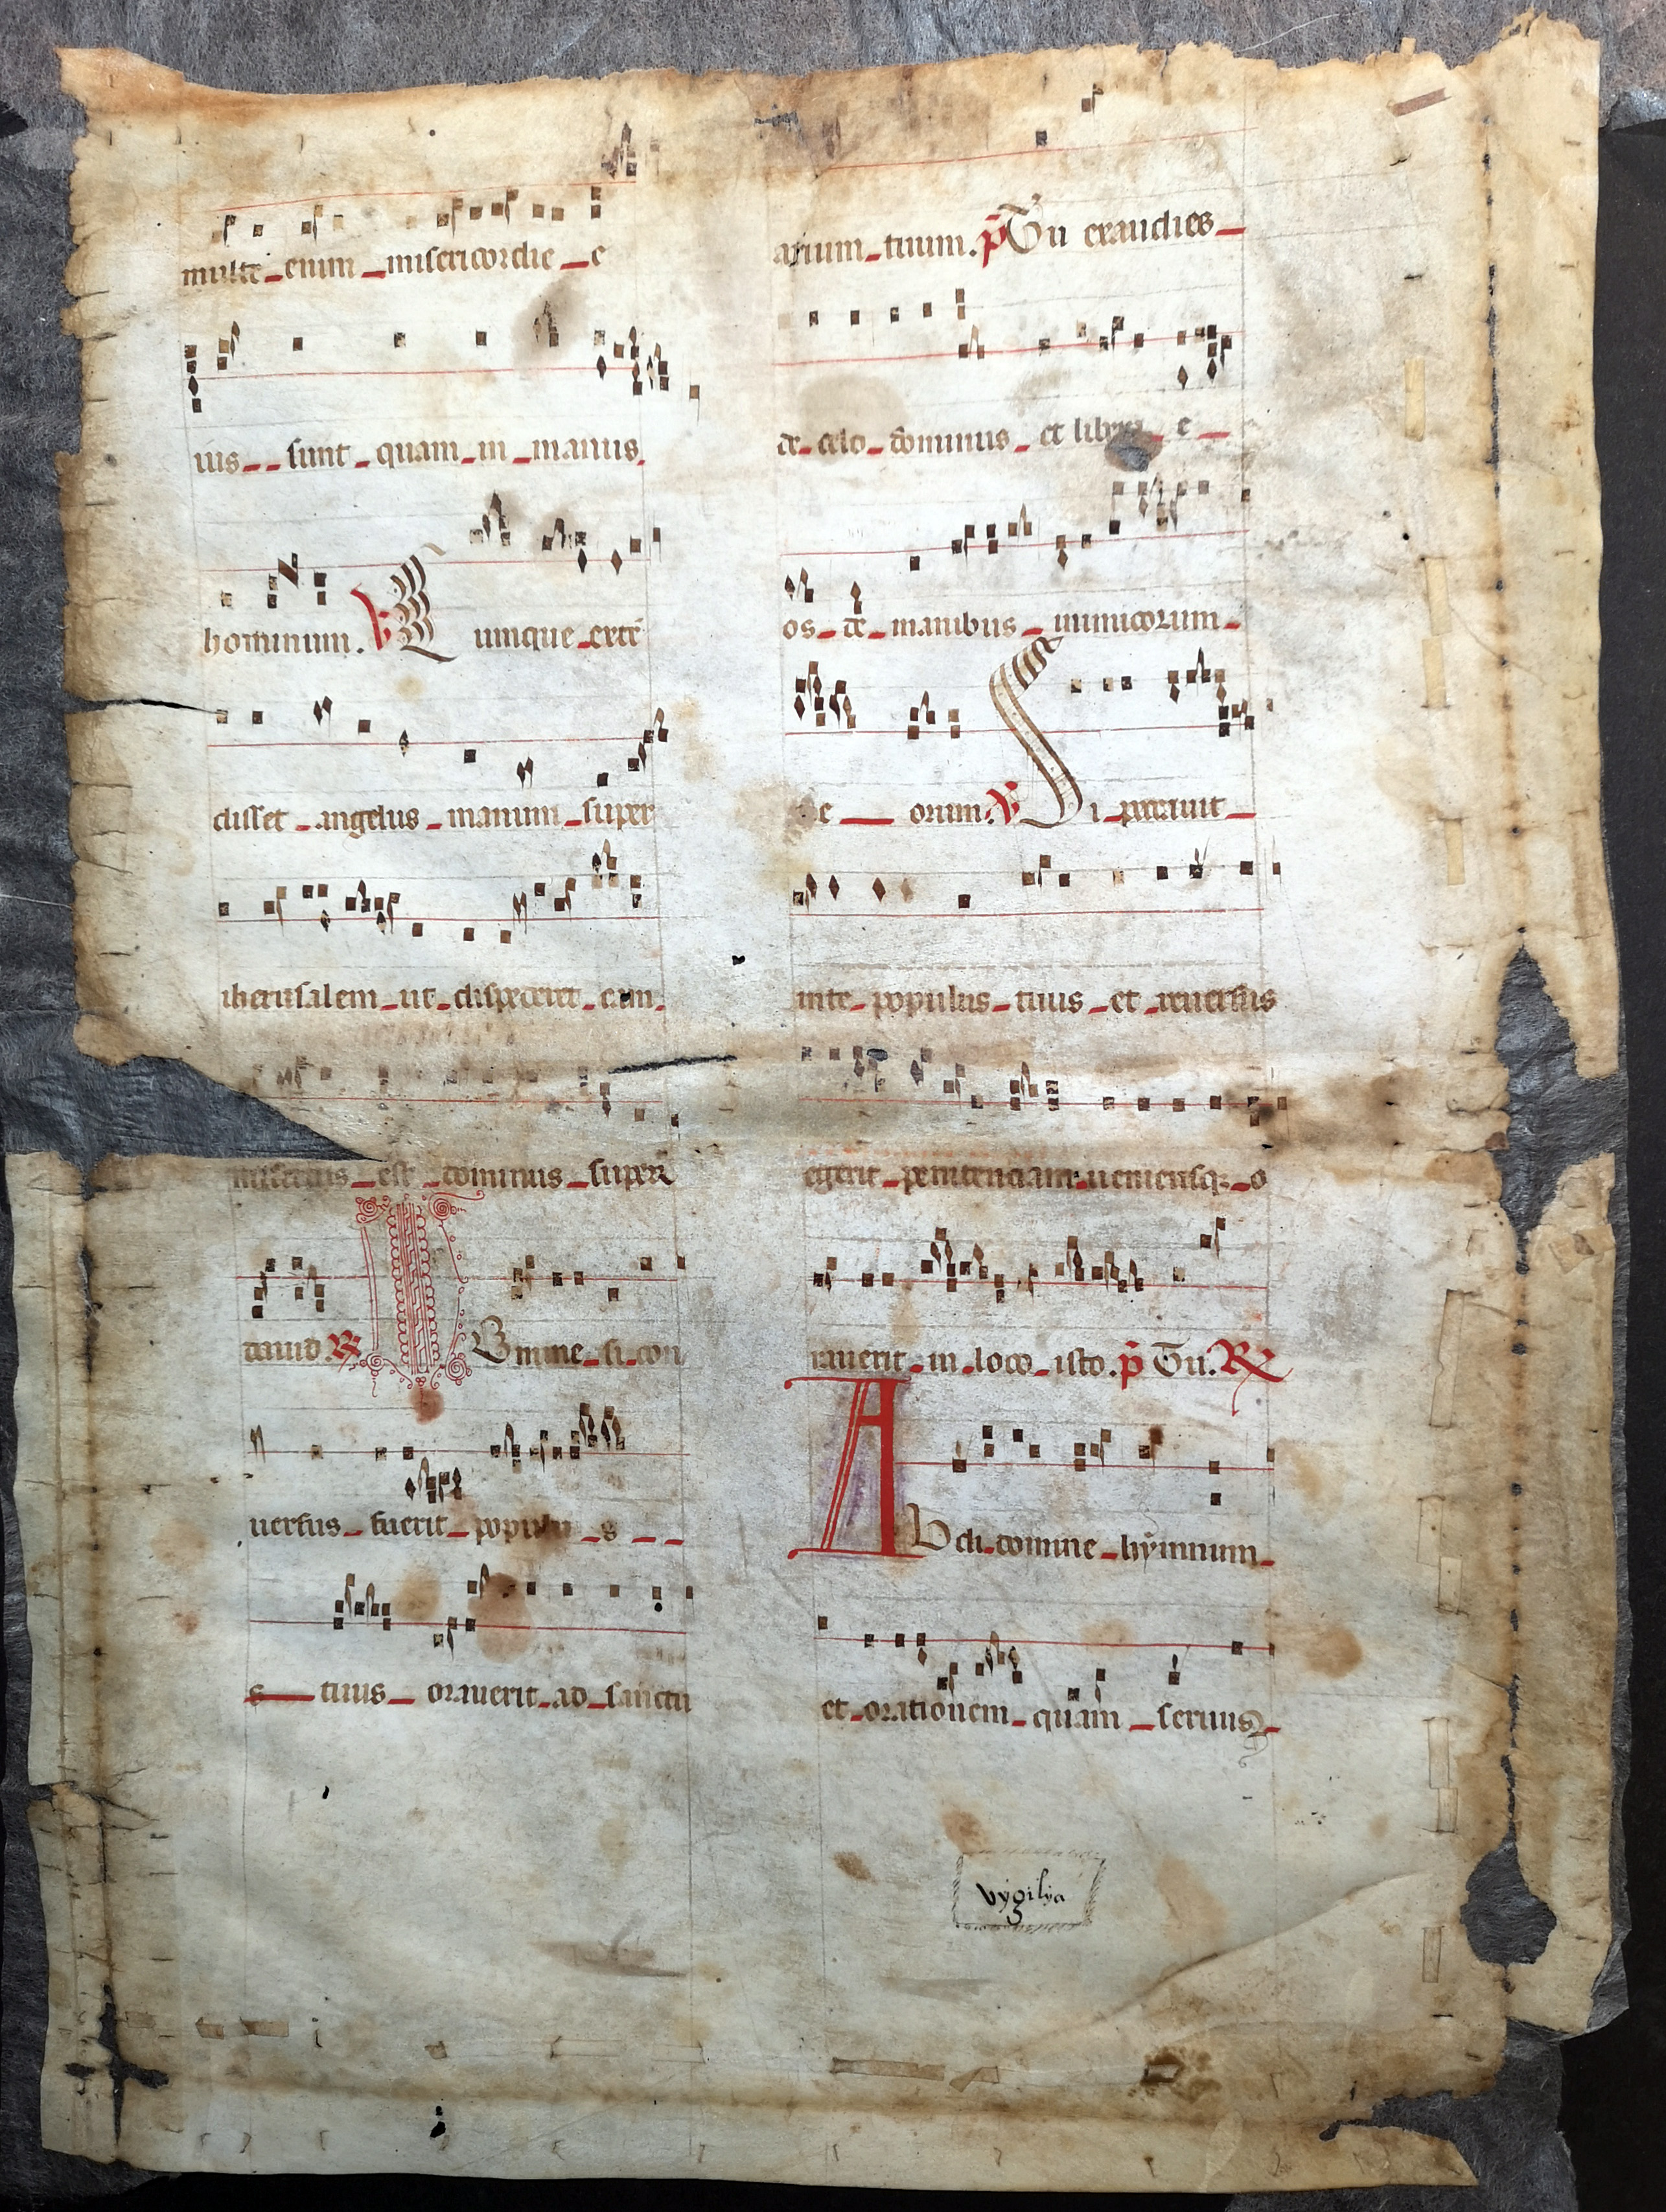 multe enim misericordie e
ius sunt quam in manus
hominum. V Cumque exten
disset angelus manum super
iherusalem ut disperderet eam
misertus est dominus super
david. R Domine si con
versus fuerit populu s
s tuus oraverit ad sanctu
arium tuum. p Tu exaudies
de celo dominus et libera e
os de manibus inimicorum
orum. V Si peccaverit
inte populus tuus et reversus
egerit penitenciam veniensq; o
raverit in loco isto. p Tu. R
Audi domine hymnum
et orationem quam servus
vygilya